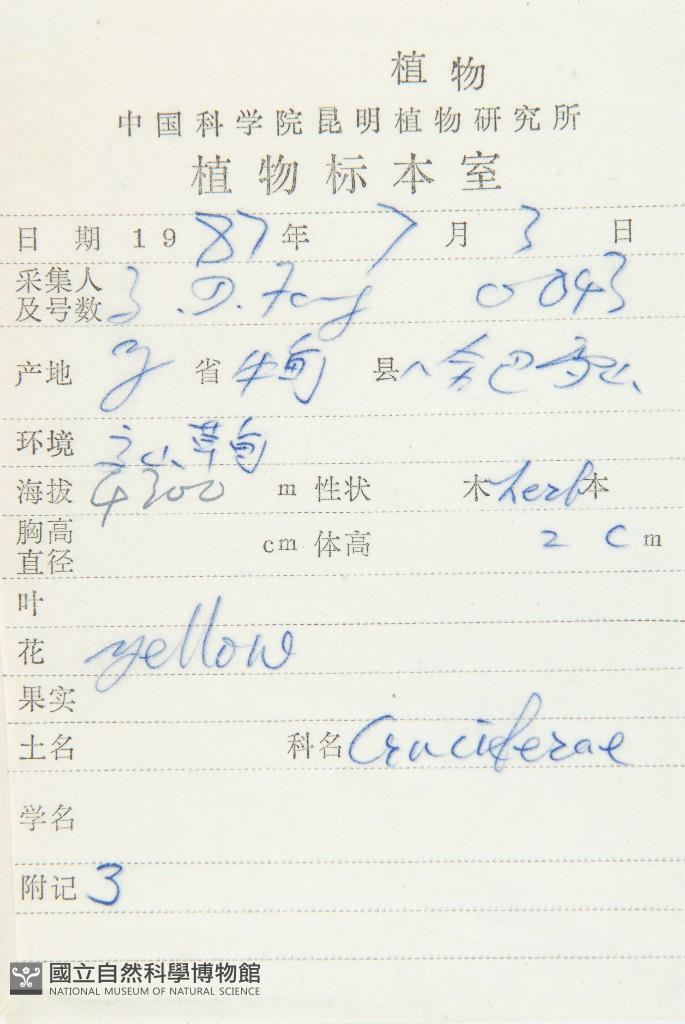 植物
中国科学院昆明植物研究所
植物标本室
日 期 1987年 7 月 3 日
采集人
及号数 .D. Fang 0043
产地 省 中甸 县 哈巴雪山
环境 高山草甸
海拔 4300 m 性状 木 herb 本
胸高
直径 cm 体高 2 c m
叶
花 yellow
果实
土名 科名 Cruciferae
学名
附记 3
國立自然科學博物館
NATIONAL MUSEUM OF NATURAL SCIENCE